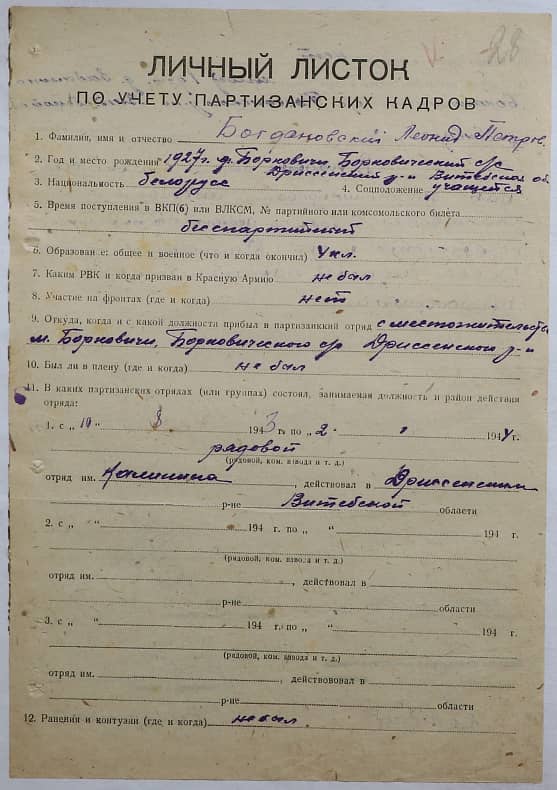 28
ЛИЧНЫЙ ЛИСТОК
ПО УЧЕТУ ПАРТИЗАНСКИХ КАДРОВ
1. Фамилия, имя и отчество Богдановский Леонид Петров.
2. Год и место рождения 1927 г. д. Борковичи, Борковический с/с
Дриссенский р-н Витебская об
3. Национальность белорусс 4. Соцположение учащейся
5. Время поступления в ВКП(б) или ВЛКСМ, № партийного или комсомольского билета
беспартийный
6. Образование: общее и военное (что и когда окончил) 4 кл.
7. Каким РВК и когда призван в Красную Армию не был
8. Участие на фронтах (где и когда) нет
9. Откуда, когда и с какой должности прибыл в партизанкий отряд с местожительства
м. Борковичи, Борковического с/с Дриссенского р-н
10. Был ли в плену (где и когда) не был
11. В каких партизанских отрядах (или группах) состоял, занимаемая должность и район действия
отряда:
1. с „ 10 " 8 1943 г. по „ 2 " 1944 г.
рядовой
(рядовой, ком. взвода и т. д.)
отряд им. Калинина, действовал в Дриссенском
р-не Витебской области
2. с „ " 194 г. по „ " 194 г.
(рядовой, ком. взвода и т. д.)
отряд им. , действовал в
р-не области
3. с „ " 194 г. по „ " 194 г.
(рядовой, ком. взвода и т. д.)
отряд им. , действововал в
р-не области
12. Ранения и контузии (где и когда) не был